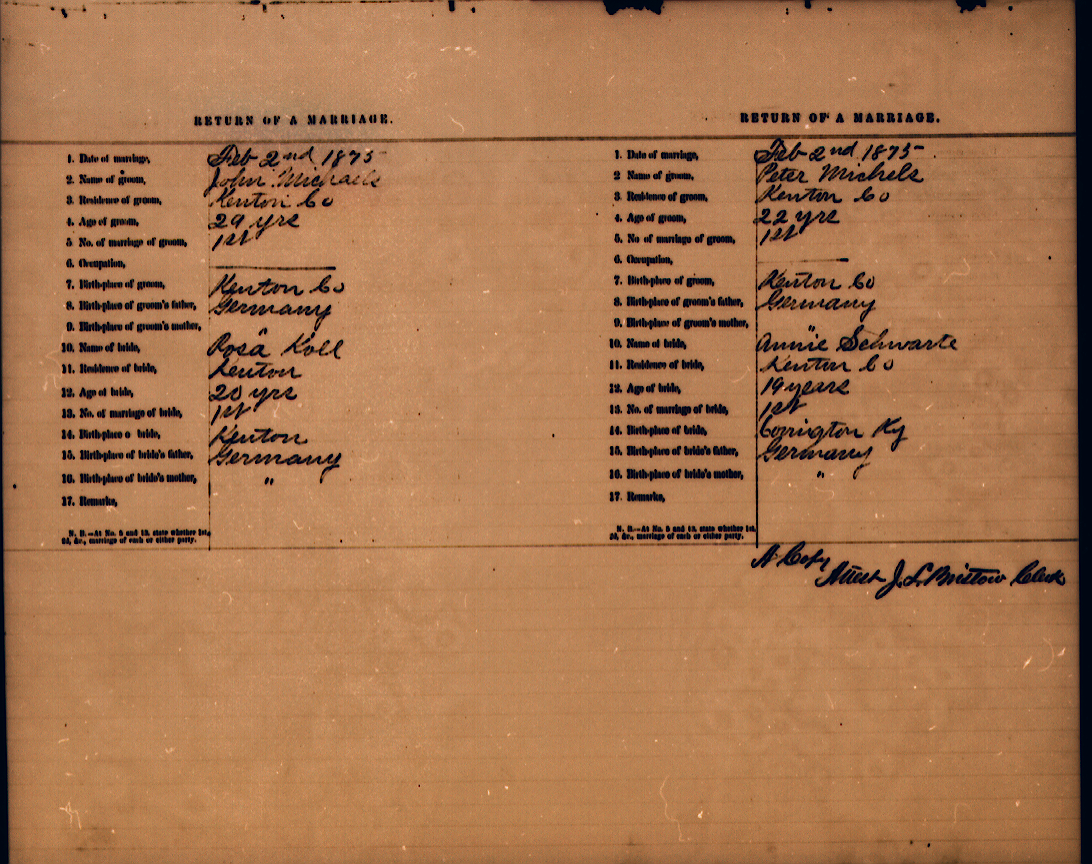 RETURN OF A MARRIAGE.
1. Date of marriage, Feb 2nd 1875
2. Name of groom, John Michaels
3. Residence of groom, Kenton Co
4. Age of groom, 29 yrs
5 No. of marriage of groom, 1st
6. Occupation,
7. Birth-place of groom, Kenton Co
8. Birth-place of groom's father, Germany
9. Birth-place of groom's mother,
10. Name of bride, Rosa Koll
11. Residence of bride, Kenton
12. Age of bride, 20 yrs
13. No. of marriage of bride, 1st
14. Birth-place o bride, Kenton
15. Birth-place of bride's father, Germany
16. Birth-place of bride's mother, "
17. Remarks,
N. B.—At No. 5 and 13, state whether 1st,
2d, &c., marriage of each or either party.
RETURN OF A MARRIAGE.
1. Date of marriage, Feb 2nd 1875
2 Name of groom, Peter Michels
3. Residence of groom, Kenton Co
4. Age of groom, 22 yrs
5. No of marriage of groom, 1st
6. Occupation,
7. Birth-place of groom, Kenton Co
8. Birth-place of groom's father, Germany
9. Birth-place of groom's mother, "
10. Name of bride, Annie Schwarte
11. Residence of bride, Kenton Co
12. Age of bride, 19 years
13. No. of marriage of bride, 1st
14. Birth-place of bride, Covington Ky
15. Birth-place of bride's father, Germany
16. Birth-place of bride's mother, "
17. Remarks,
N. B.—At No. 5 and 13, state whether 1st,
2d, &c., marriage of each or either party.
A Copy
Attest J. L. Bristow Clerk